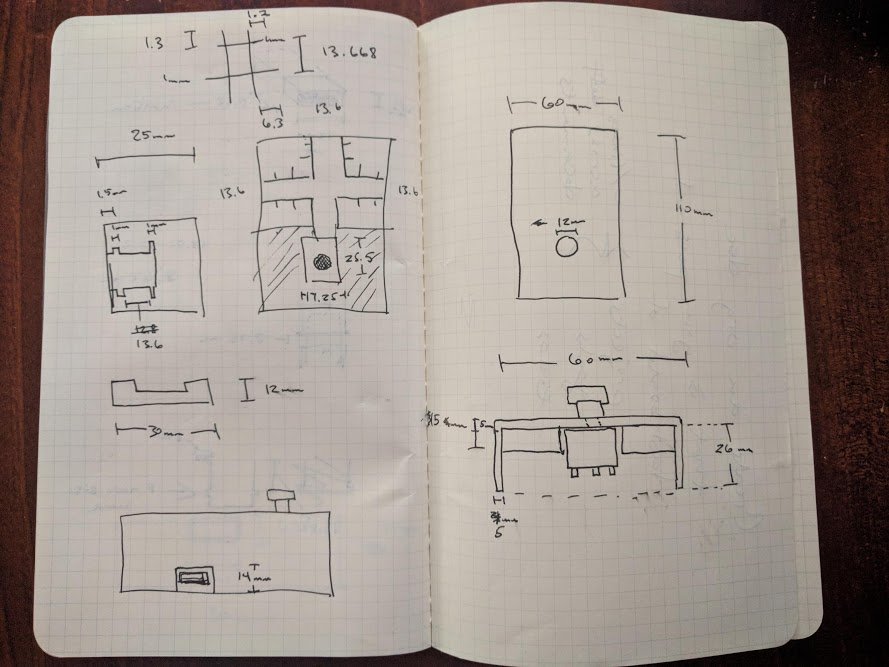 1.7
1.3
1mm
13.668
1mm
6.3
13.6
25mm
13.6
13.6
1.5mm
1mm
1mm
25.5
17.25
12.8
13.6
12mm
30mm
14mm
60mm
12mm
110mm
60mm
5mm
26mm
5